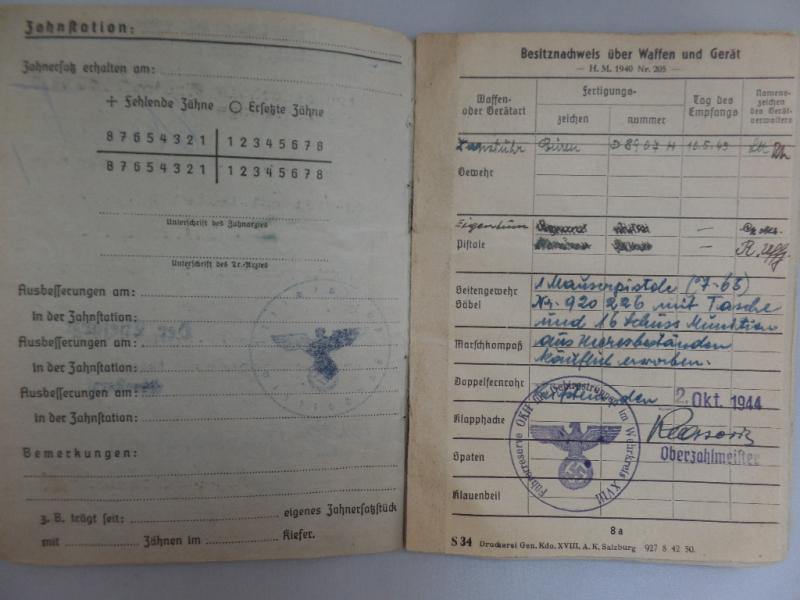 Zahnstation:
Zahnersatz erhalten am:
+ Fehlende Zähne ○ Ersetzte Zähne
8 7 6 5 4 3 2 1 | 1 2 3 4 5 6 7 8
8 7 6 5 4 3 2 1 | 1 2 3 4 5 6 7 8
Unterschrift des Zahnarztes
Unterschrift des Tr.-Arztes
Ausbesserungen am:
in der Zahnstation:
Ausbesserungen am:
in der Zahnstation:
Ausbesserungen am:
in der Zahnstation:
Bemerkungen:
z. B. trägt seit: eigenes Zahnersatzstück
mit Zähnen im Kiefer.
Besitznachweis über Waffen und Gerät
— H. M. 1940 Nr. 205 —
Waffen- oder Gerätart
Fertigungs-
zeichen
nummer
Tag des Empfangs
Namens- zeichen des Gerät- verwalters
Büren D 8907 H 10.5.43
Gewehr
Eigentum —
Pistole —
Seitengewehr
Säbel
1 Mauserpistole (7.65)
Nr. 920 226 mit Tasche
und 16 Schuss Munition
Marschkompaß
aus Heeresbeständen
käuflich erworben.
Doppelfernrohr
2. Okt. 1944
Klapphacke
Oberzahlmeister
Spaten
Klauenbeil
Führerreserve OKH der Gebirgstruppe im Wehrkreis XVIII
8a
S 34 Druckerei Gen. Kdo. XVIII. A. K. Salzburg 927 S 42 50.